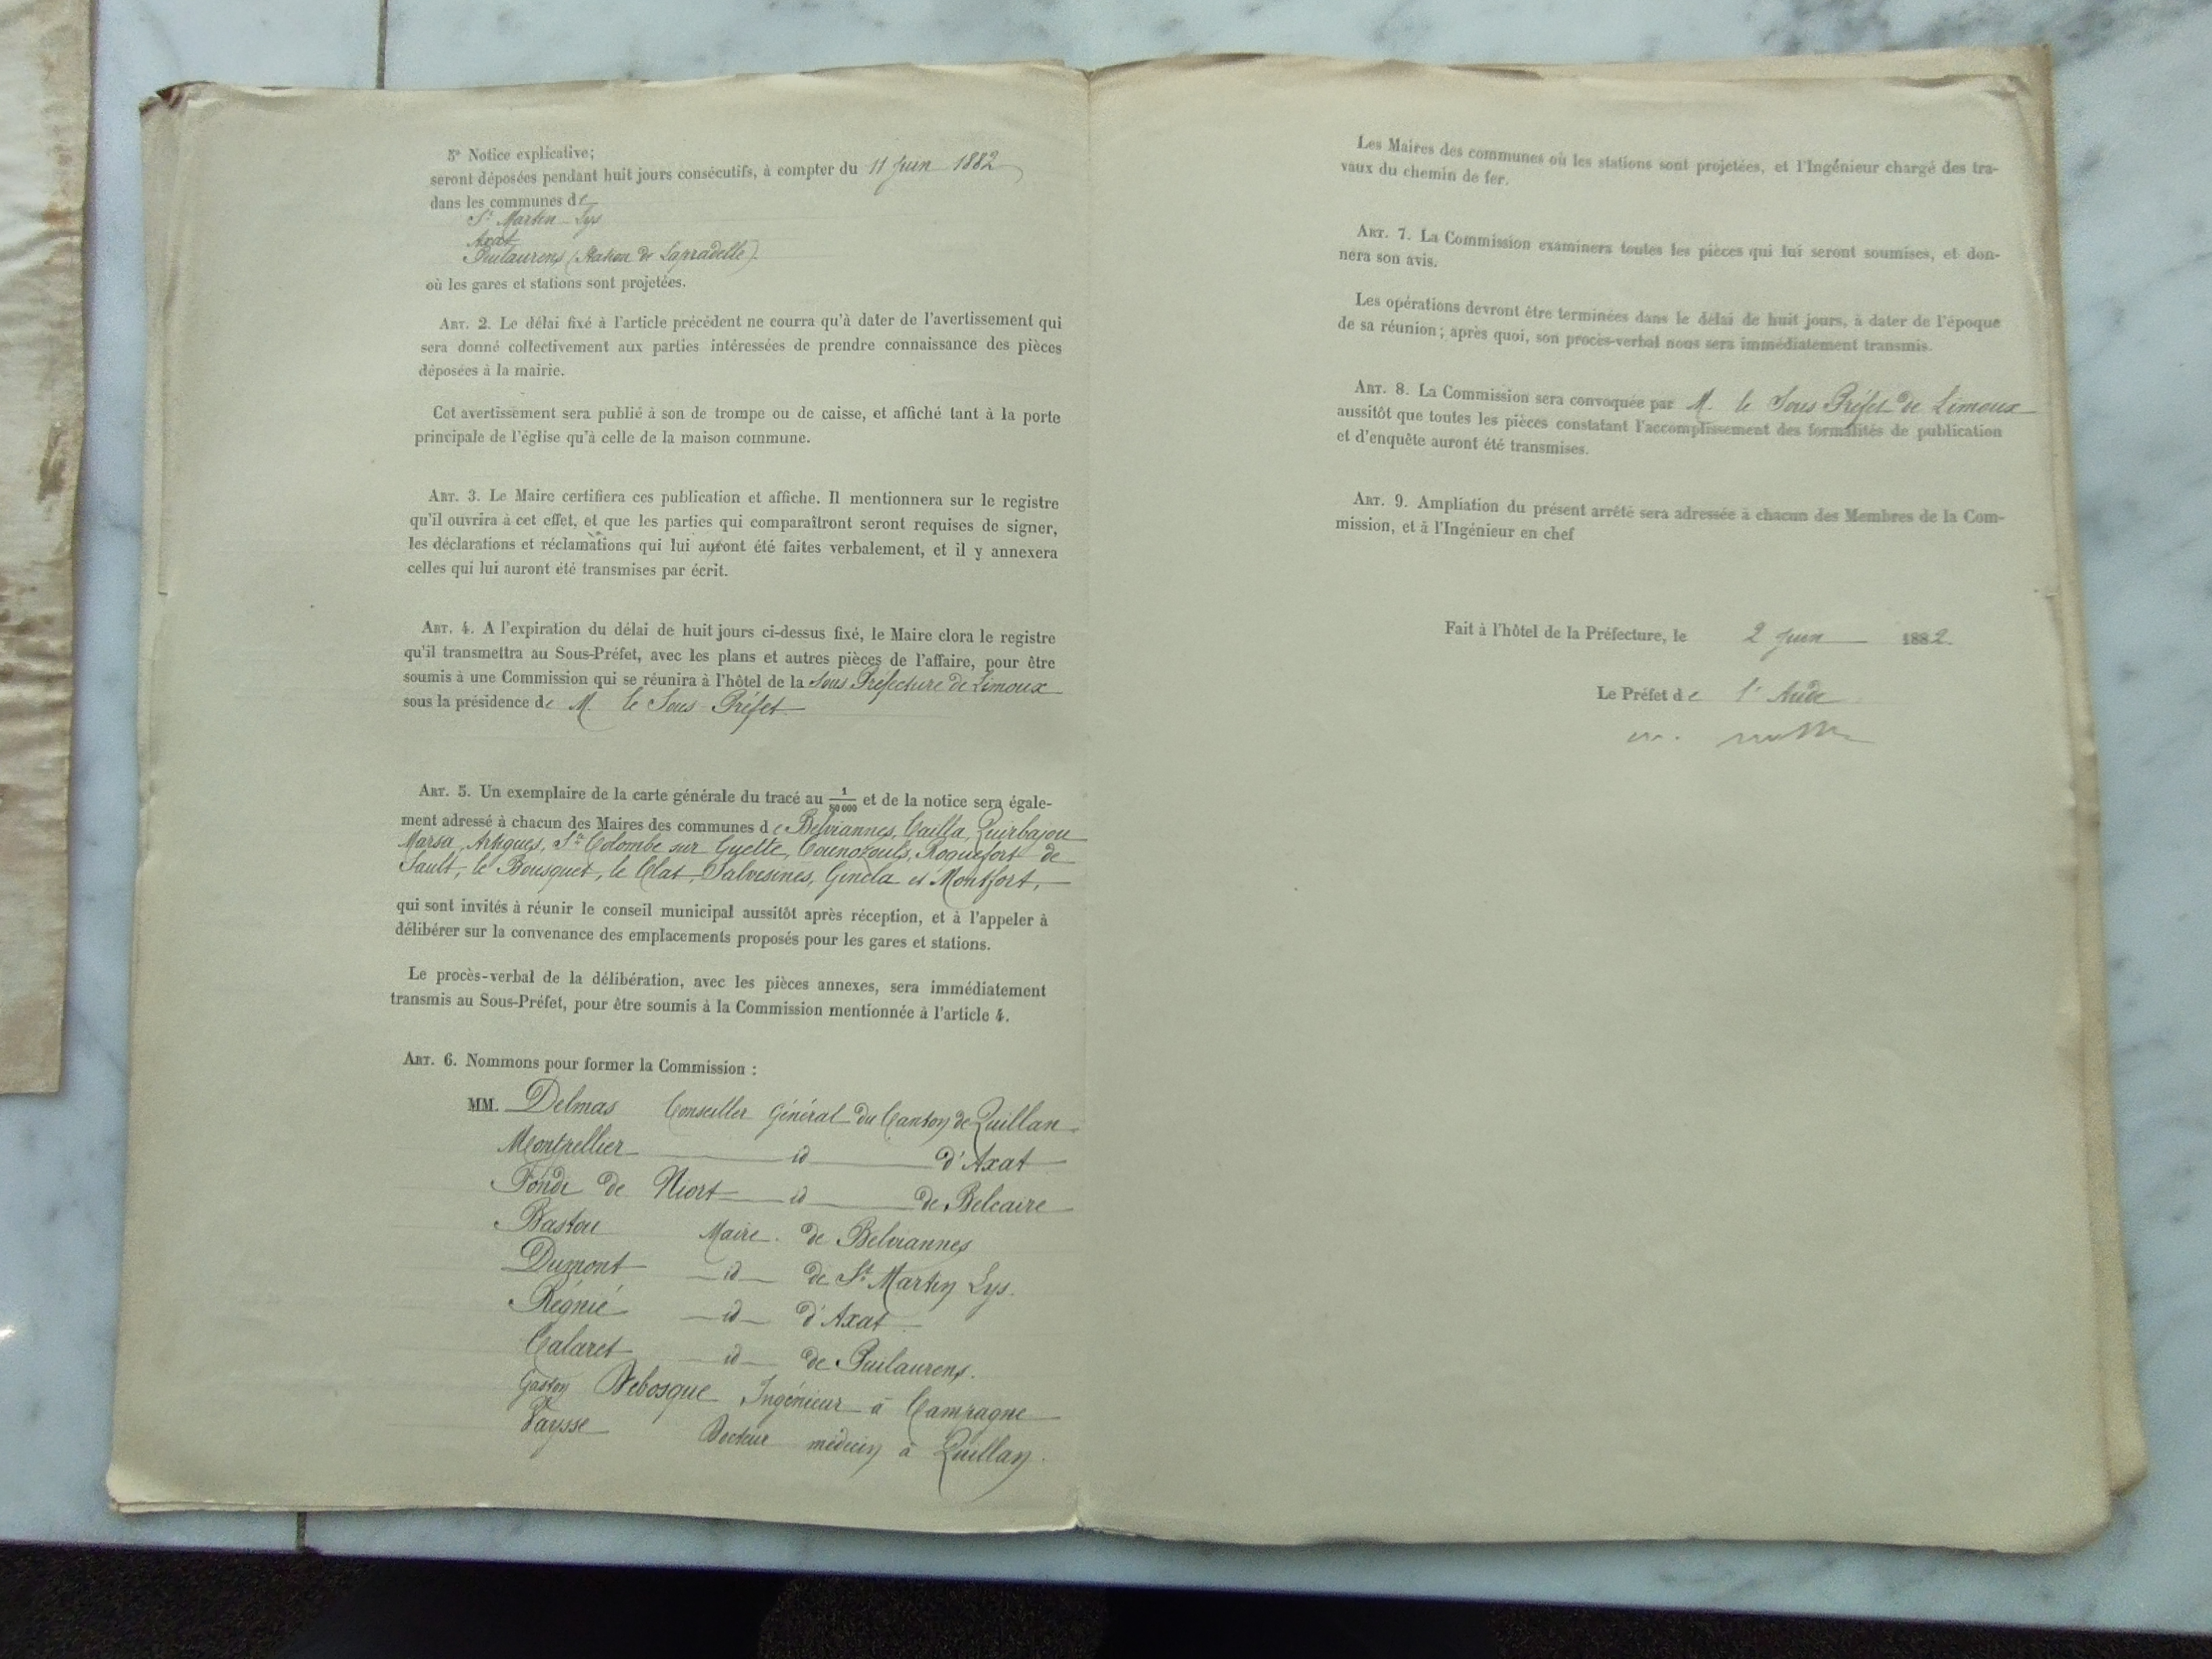 5° Notice explicative;
seront déposées pendant huit jours consécutifs, à compter du 11 Juin 1882
dans les communes de
St Martin Lys
Axat
Puilaurens (Station de Lapradelle).
où les gares et stations sont projetées.
ART. 2. Le délai fixé à l'article précédent ne courra qu'à dater de l'avertissement qui
sera donné collectivement aux parties intéressées de prendre connaissance des pièces
déposées à la mairie.
Cet avertissement sera publié à son de trompe ou de caisse, et affiché tant à la porte
principale de l'église qu'à celle de la maison commune.
ART. 3. Le Maire certifiera ces publication et affiche. Il mentionnera sur le registre
qu'il ouvrira à cet effet, et que les parties qui comparaîtront seront requises de signer,
les déclarations et réclamations qui lui auront été faites verbalement, et il y annexera
celles qui lui auront été transmises par écrit.
ART. 4. A l'expiration du délai de huit jours ci-dessus fixé, le Maire clora le registre
qu'il transmettra au Sous-Préfet, avec les plans et autres pièces de l'affaire, pour être
soumis à une Commission qui se réunira à l'hôtel de la Sous Préfecture de Limoux
sous la présidence de M. le Sous Préfet
ART. 5. Un exemplaire de la carte générale du tracé au 1/80000 et de la notice sera égale-
ment adressé à chacun des Maires des communes de Belviannes, Cailla, Quirbajou
Marsa, Artigues, Ste Colombe sur Guette, Counozouls, Roquefort de
Sault, le Bousquet, le Clat, Salvesines, Gincla et Montfort,
qui sont invités à réunir le conseil municipal aussitôt après réception, et à l'appeler à
délibérer sur la convenance des emplacements proposés pour les gares et stations.
Le procès-verbal de la délibération, avec les pièces annexes, sera immédiatement
transmis au Sous-Préfet, pour être soumis à la Commission mentionnée à l'article 4.
ART. 6. Nommons pour former la Commission :
MM. Delmas Conseiller Général du Canton de Quillan
Montpellier id d'Axat
Fondi de Niort id de Belcaire
Bastou Maire de Belviannes
Dumont id de St Martin Lys.
Régnié id d'Axat
Calaret id de Puilaurens.
Gaston Debosque Ingénieur à Campagne
Vaysse Docteur médecin à Quillan.
Les Maires des communes où les stations sont projetées, et l'Ingénieur chargé des tra-
vaux du chemin de fer.
ART. 7. La Commission examinera toutes les pièces qui lui seront soumises, et don-
nera son avis.
Les opérations devront être terminées dans le délai de huit jours, à dater de l'époque
de sa réunion; après quoi, son procès-verbal nous sera immédiatement transmis.
ART. 8. La Commission sera convoquée par M. le Sous Préfet de Limoux
aussitôt que toutes les pièces constatant l'accomplissement des formalités de publication
et d'enquête auront été transmises.
ART. 9. Ampliation du présent arrêté sera adressée à chacun des Membres de la Com-
mission, et à l'Ingénieur en chef
Fait à l'hôtel de la Préfecture, le 2 Juin 1882.
Le Préfet de l'Aude